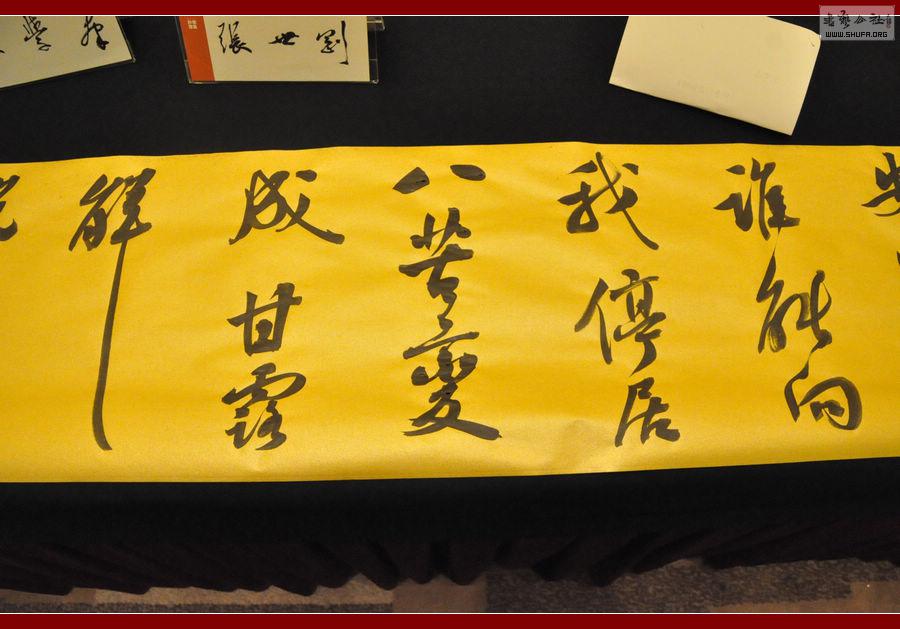 誰能向
我停居
八苦變
成甘露
解
張世劉
書藝公社
WWW.SHUFA.ORG